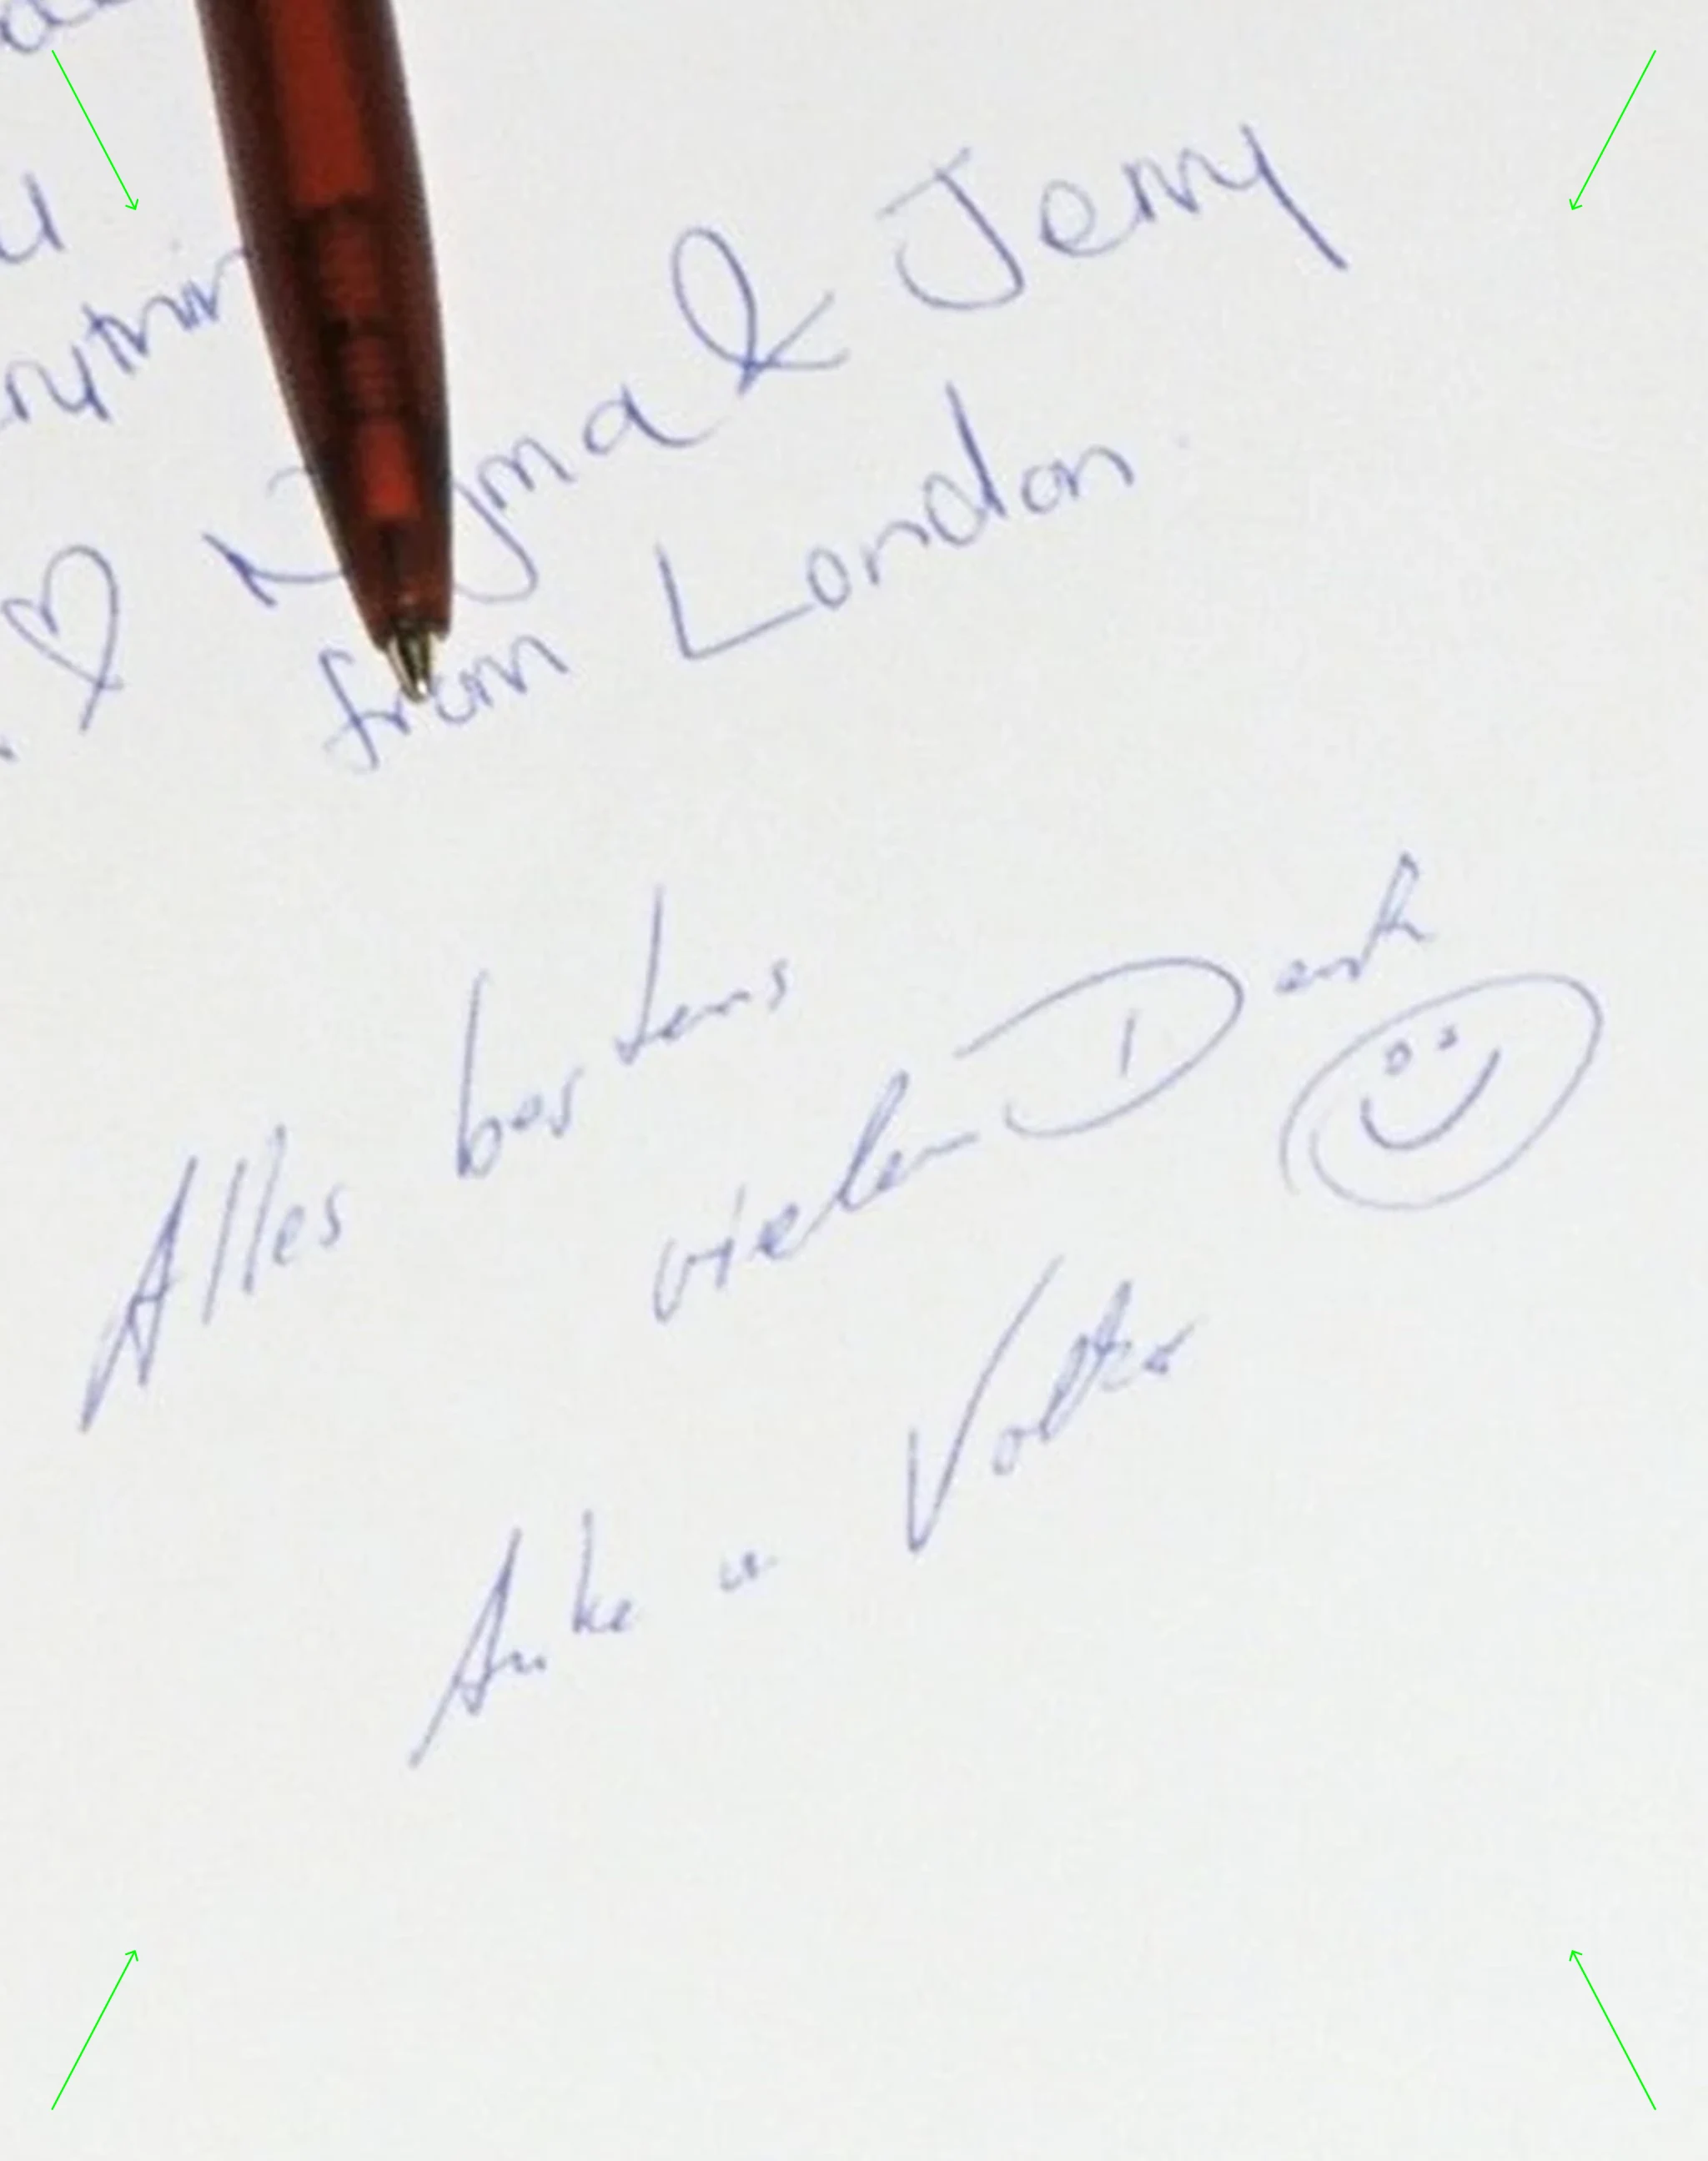 & Jerry
from London
Alles bestens
vielen Dank
Anke u. Volker